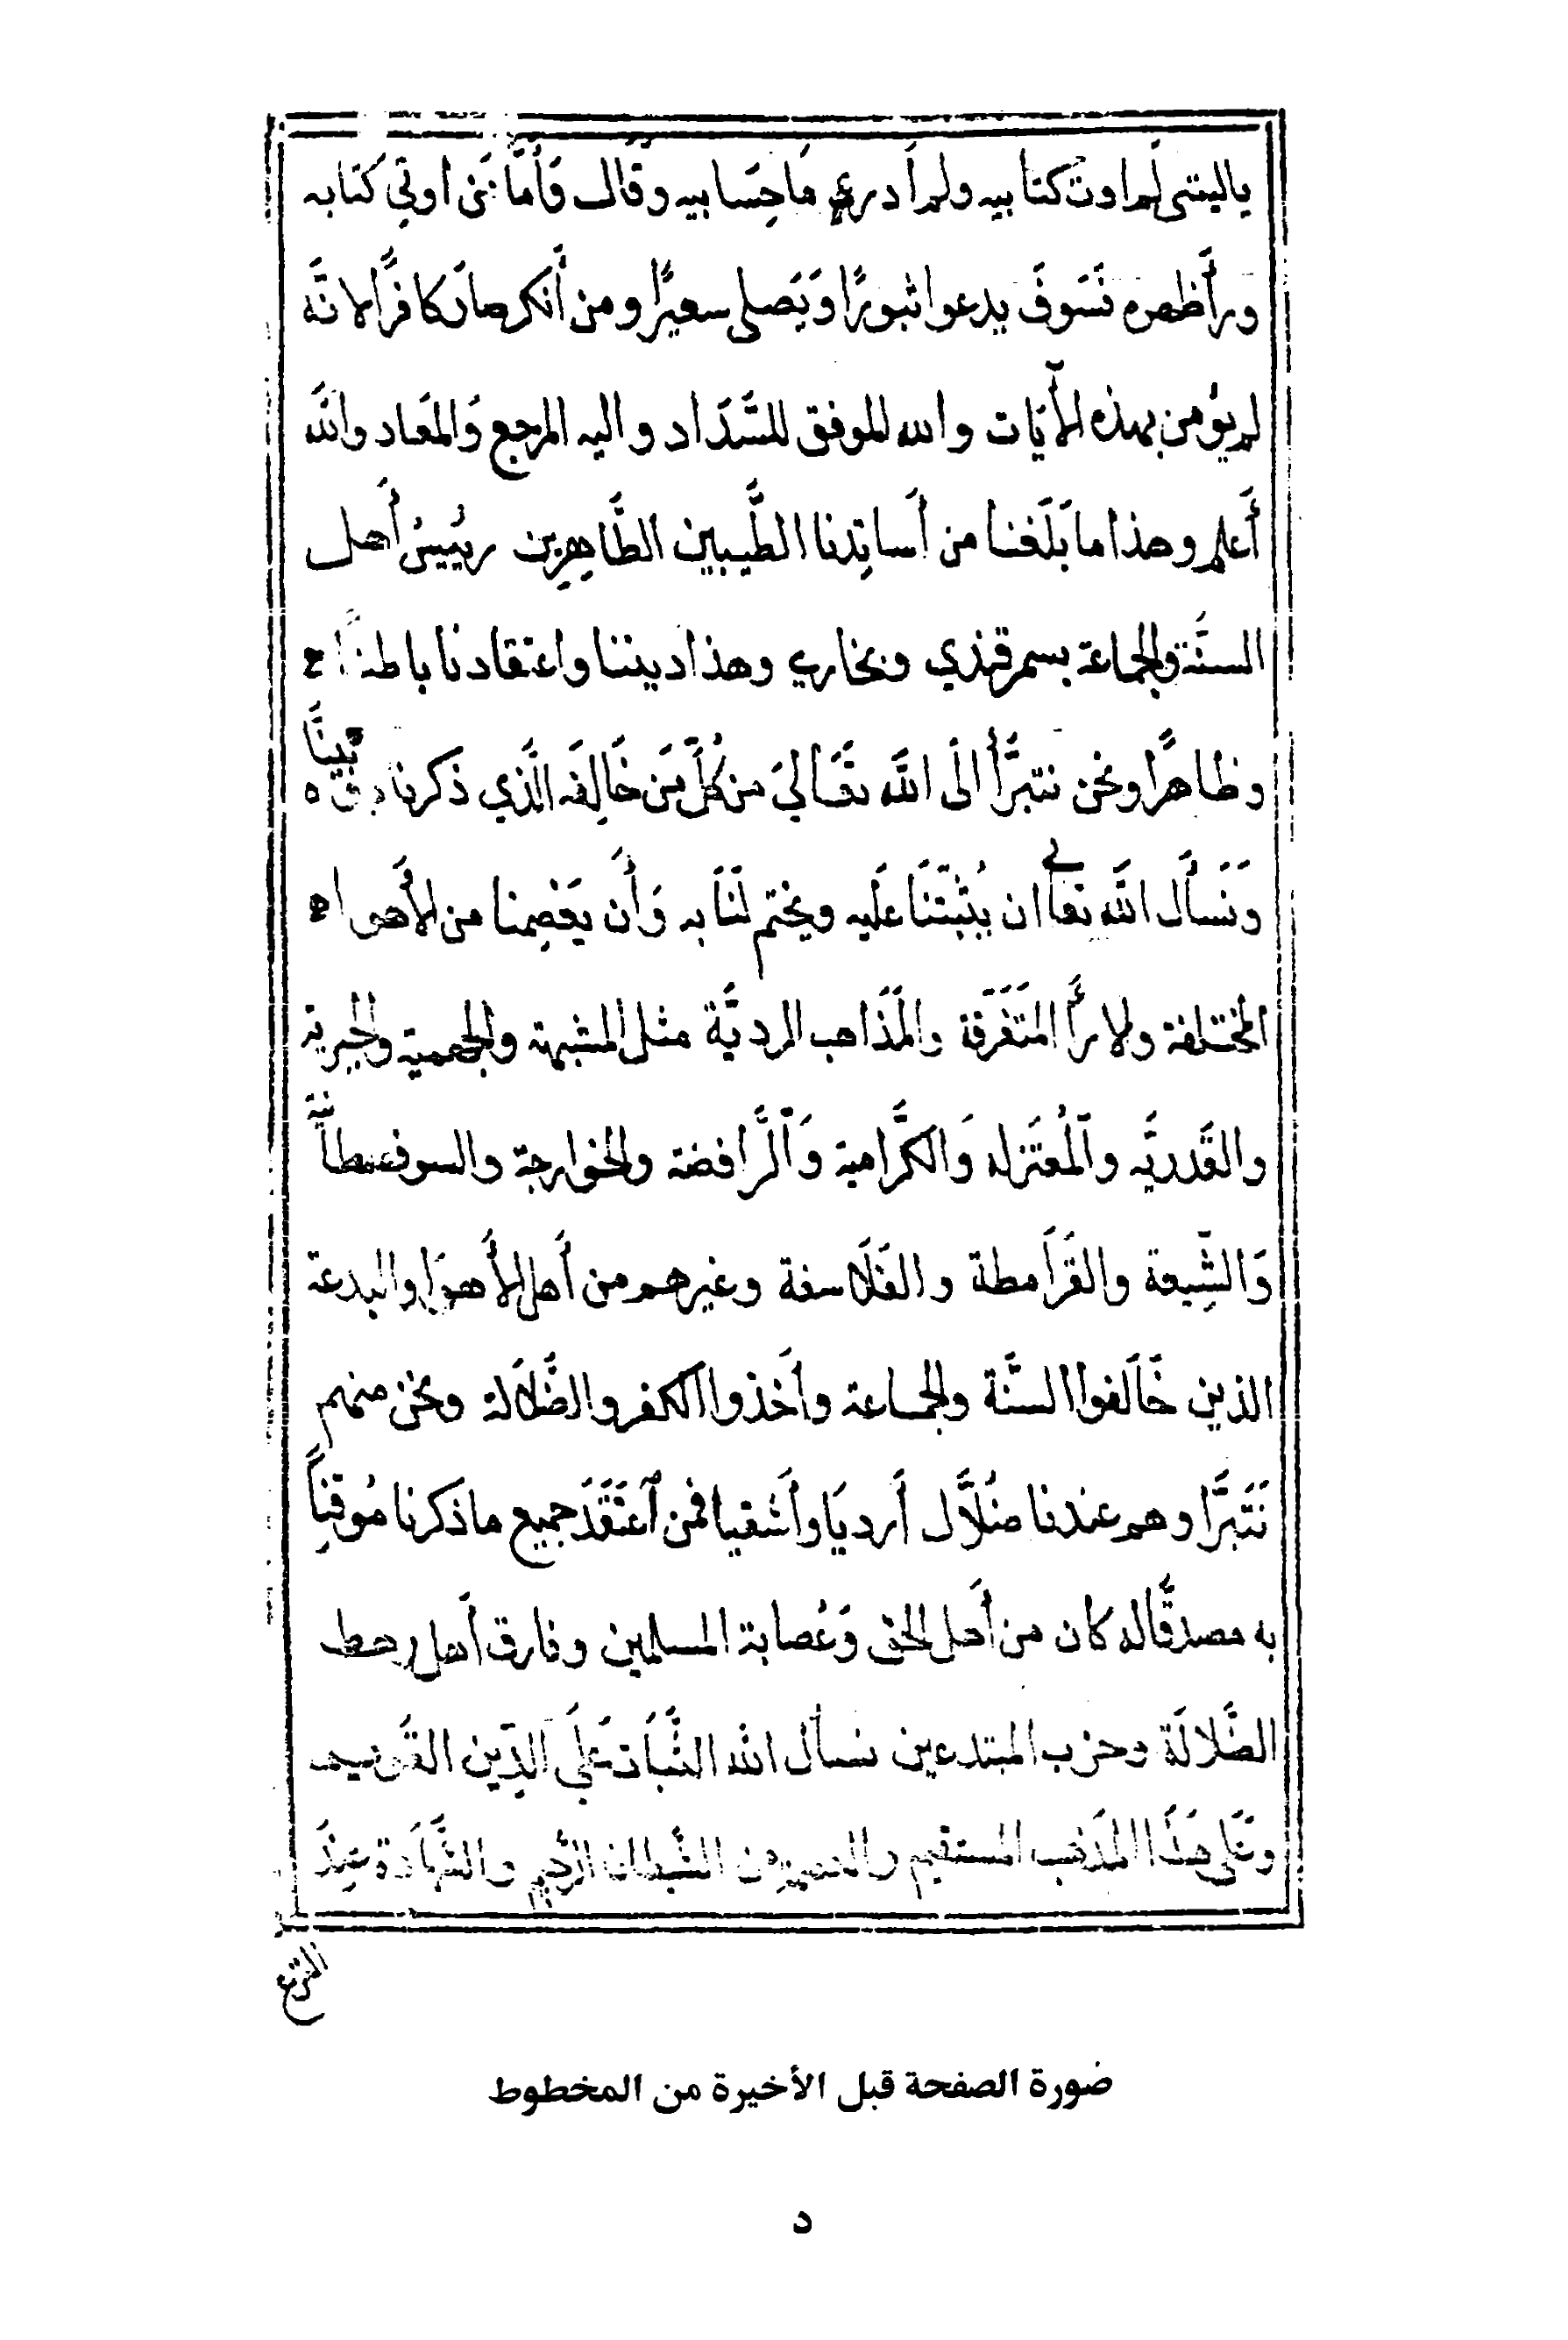 ياليتني لم اوت كتابيه ولم أدري مَا حِسَابيه وقَال فَأمَّا مَن اوتي كتابه
ورأَظهره فَسَوفَ يدعوا ثبورًا وَيَصلى سعيرًا ومن أَنكر صار كافرًا لانَّه
لم يؤمن بهذه الآيات والله الموفق للسَّدَاد واليه المرجع وَالمعَاد والله
أَعلم وهذا ما بَلَغنا من أَساتِدنا الطَّيبين الطَّاهِرين رئييسُ أَهل
السنَّة والجماعة بسمرقندي وبخاري وهذا ديننا واعتقادنا باطنًا
وظاهرًا ونحن نتبرَّأ الَى اللَّه تعَالىَ من كُلّ مَن خَالِفَه الَّذي ذكرنا بينَّا
وَنَسأَل اللَّه تعا ان يُثبِّتَنَا عَلَيه ويختم لَنَا به وَأَن يَعْصِمنا من الأَهواء
المختلفة والارأَ المتَفَرّقة والمَذَاهب الرديَّة مثل المشبهة والجهمية والجبرية
والقَدريَّه والمُعتَزله وَالكرَّامية وَالرَّافضة والخوارجة والسوفسطائية
وَالشِّيعة والقَرَامطة والفَلَاسفة وغيرهم من أَهل الأَهوَا والبدعة
الذين خَالَفوا السنَّة والجماعة وأَخذوا الكفر والضَّلَالة ونحن منهم
نَتَبَرَّا وهم عندنا ضُلَّال أَرديَا وأَشقيا فمن اَعتَقَدَ جميع ما ذكرنا مُوقنِاً
به مصدقًاله كان من أَهل الحق وَعُصابة المسلمين وفارق أَهل رهط
الضَّلالَة وحزب المبتدعين نسأل الله الثَّبَات عَلَي الدِّين القَويم
وعَلى هَذَا المَذهب المستقيم من الشَّيطان الرَّجيم والشَّهَادة عِندَ
النزع
صورة الصفحة قبل الأخيرة من المخطوط
د